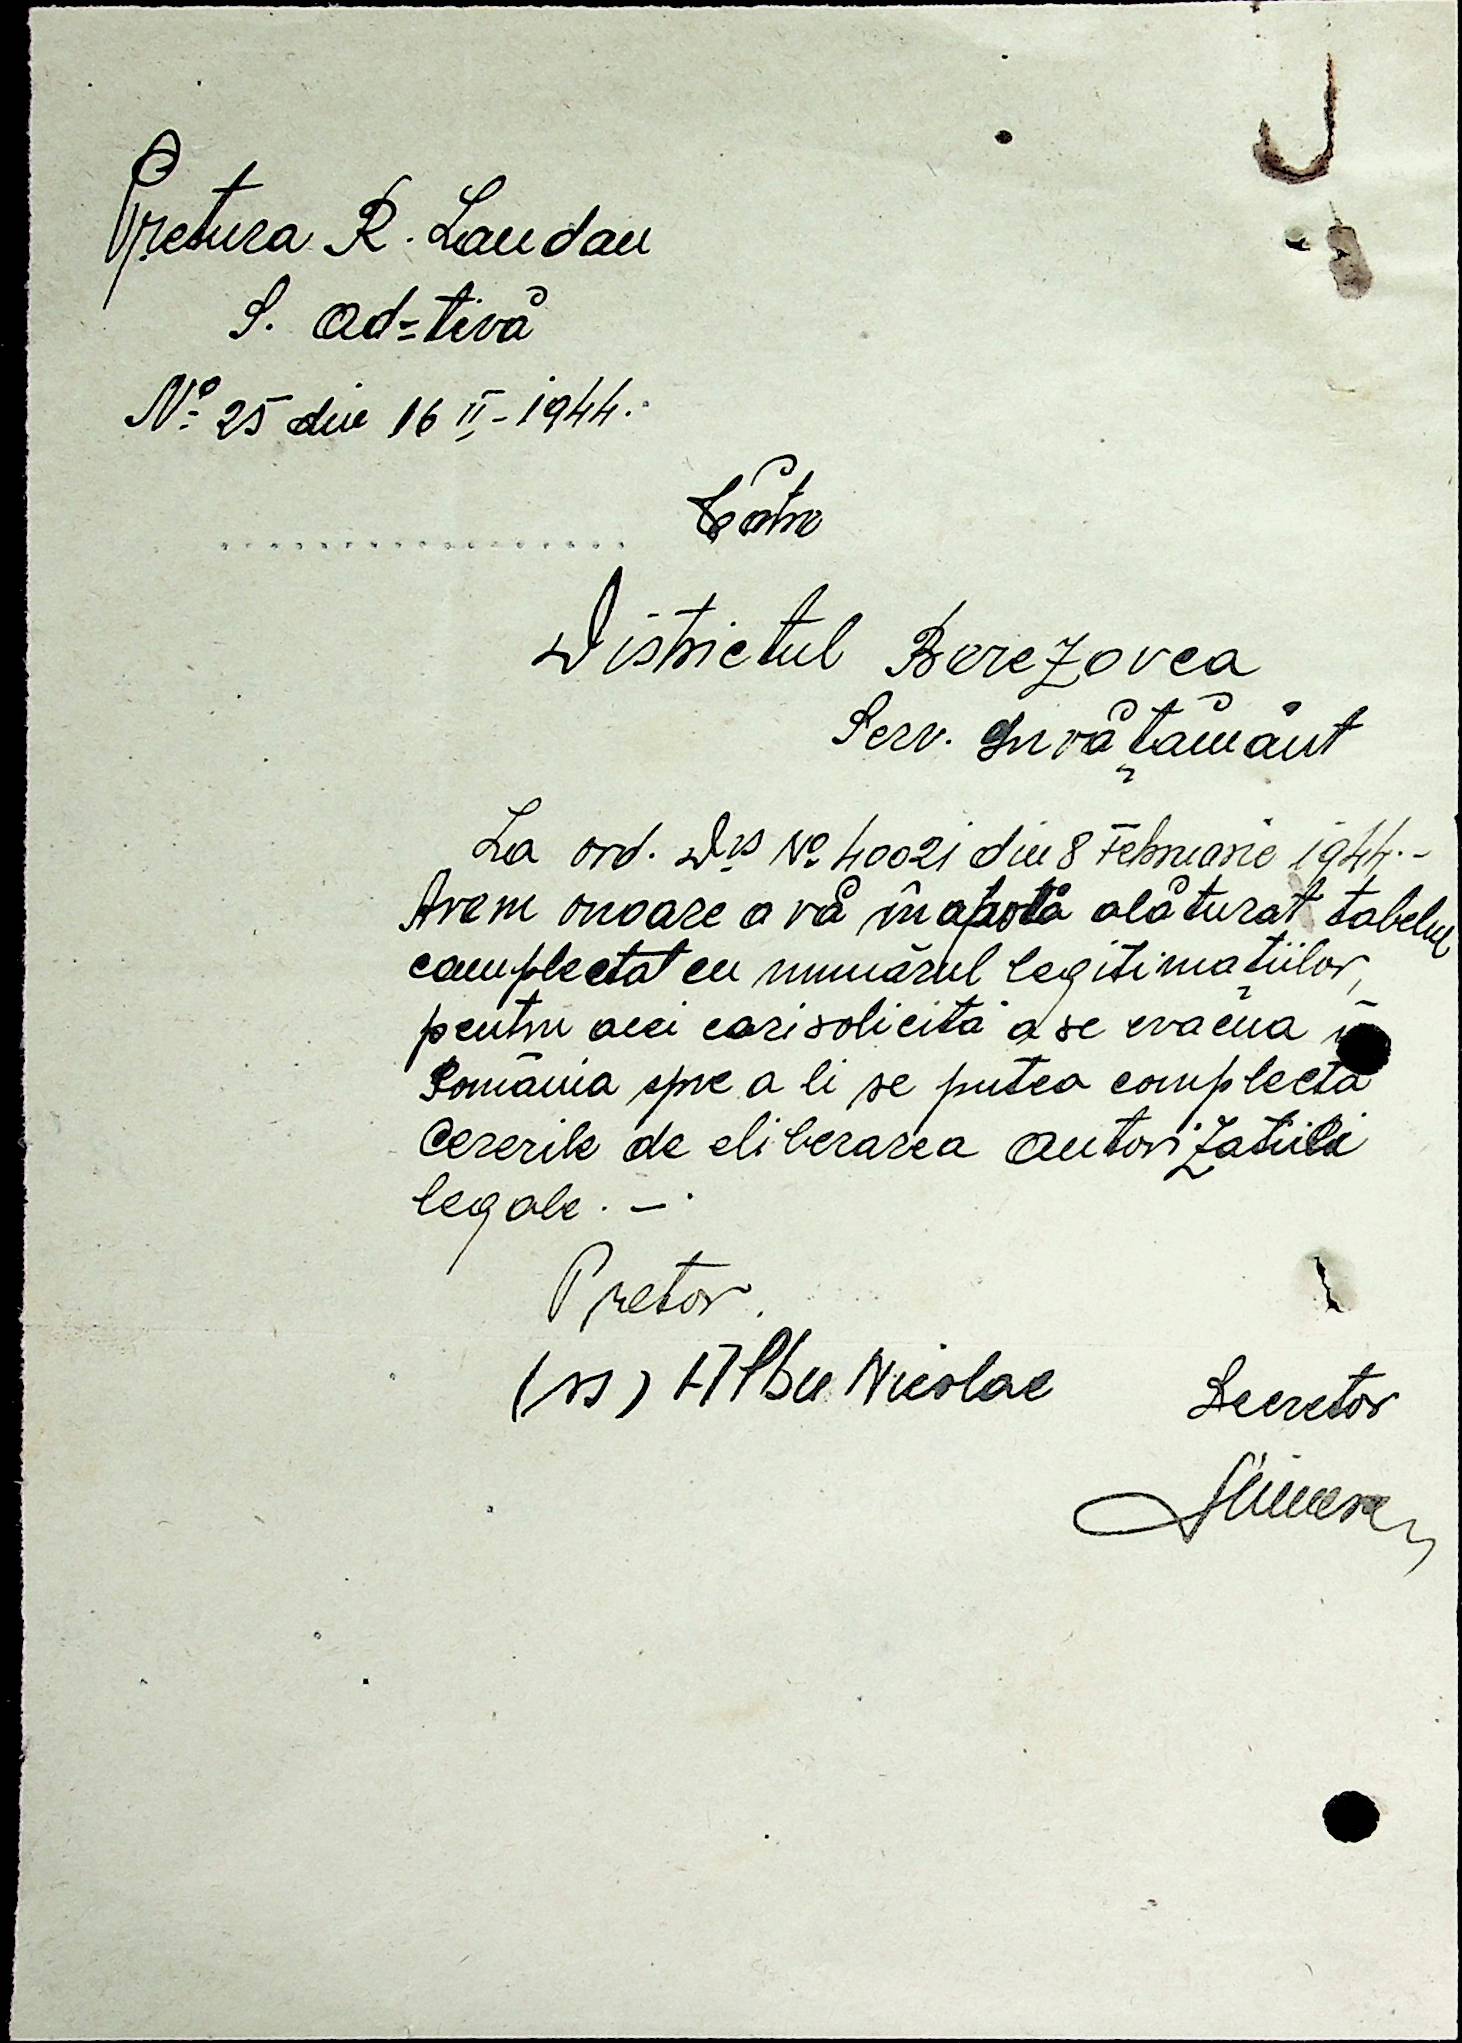 Pretura R. Landau
S. Ad-tivă
No 25 din 16 II-1944.
Către
Districtul Berezovca
Serv. Învățământ
La ord. Dvs No 40021 din 8 Februarie 1944.-
Avem onoare a vă înapoia alăturat tabelul
complectat cu numărul legitimațiilor,
pentru acei cari solicită a se evacua în
România spre a li se putea complecta
Cererile de eliberarea autorizatiilor
legale. -
Pretor.
(ss) Albu Nicolae
Secretar